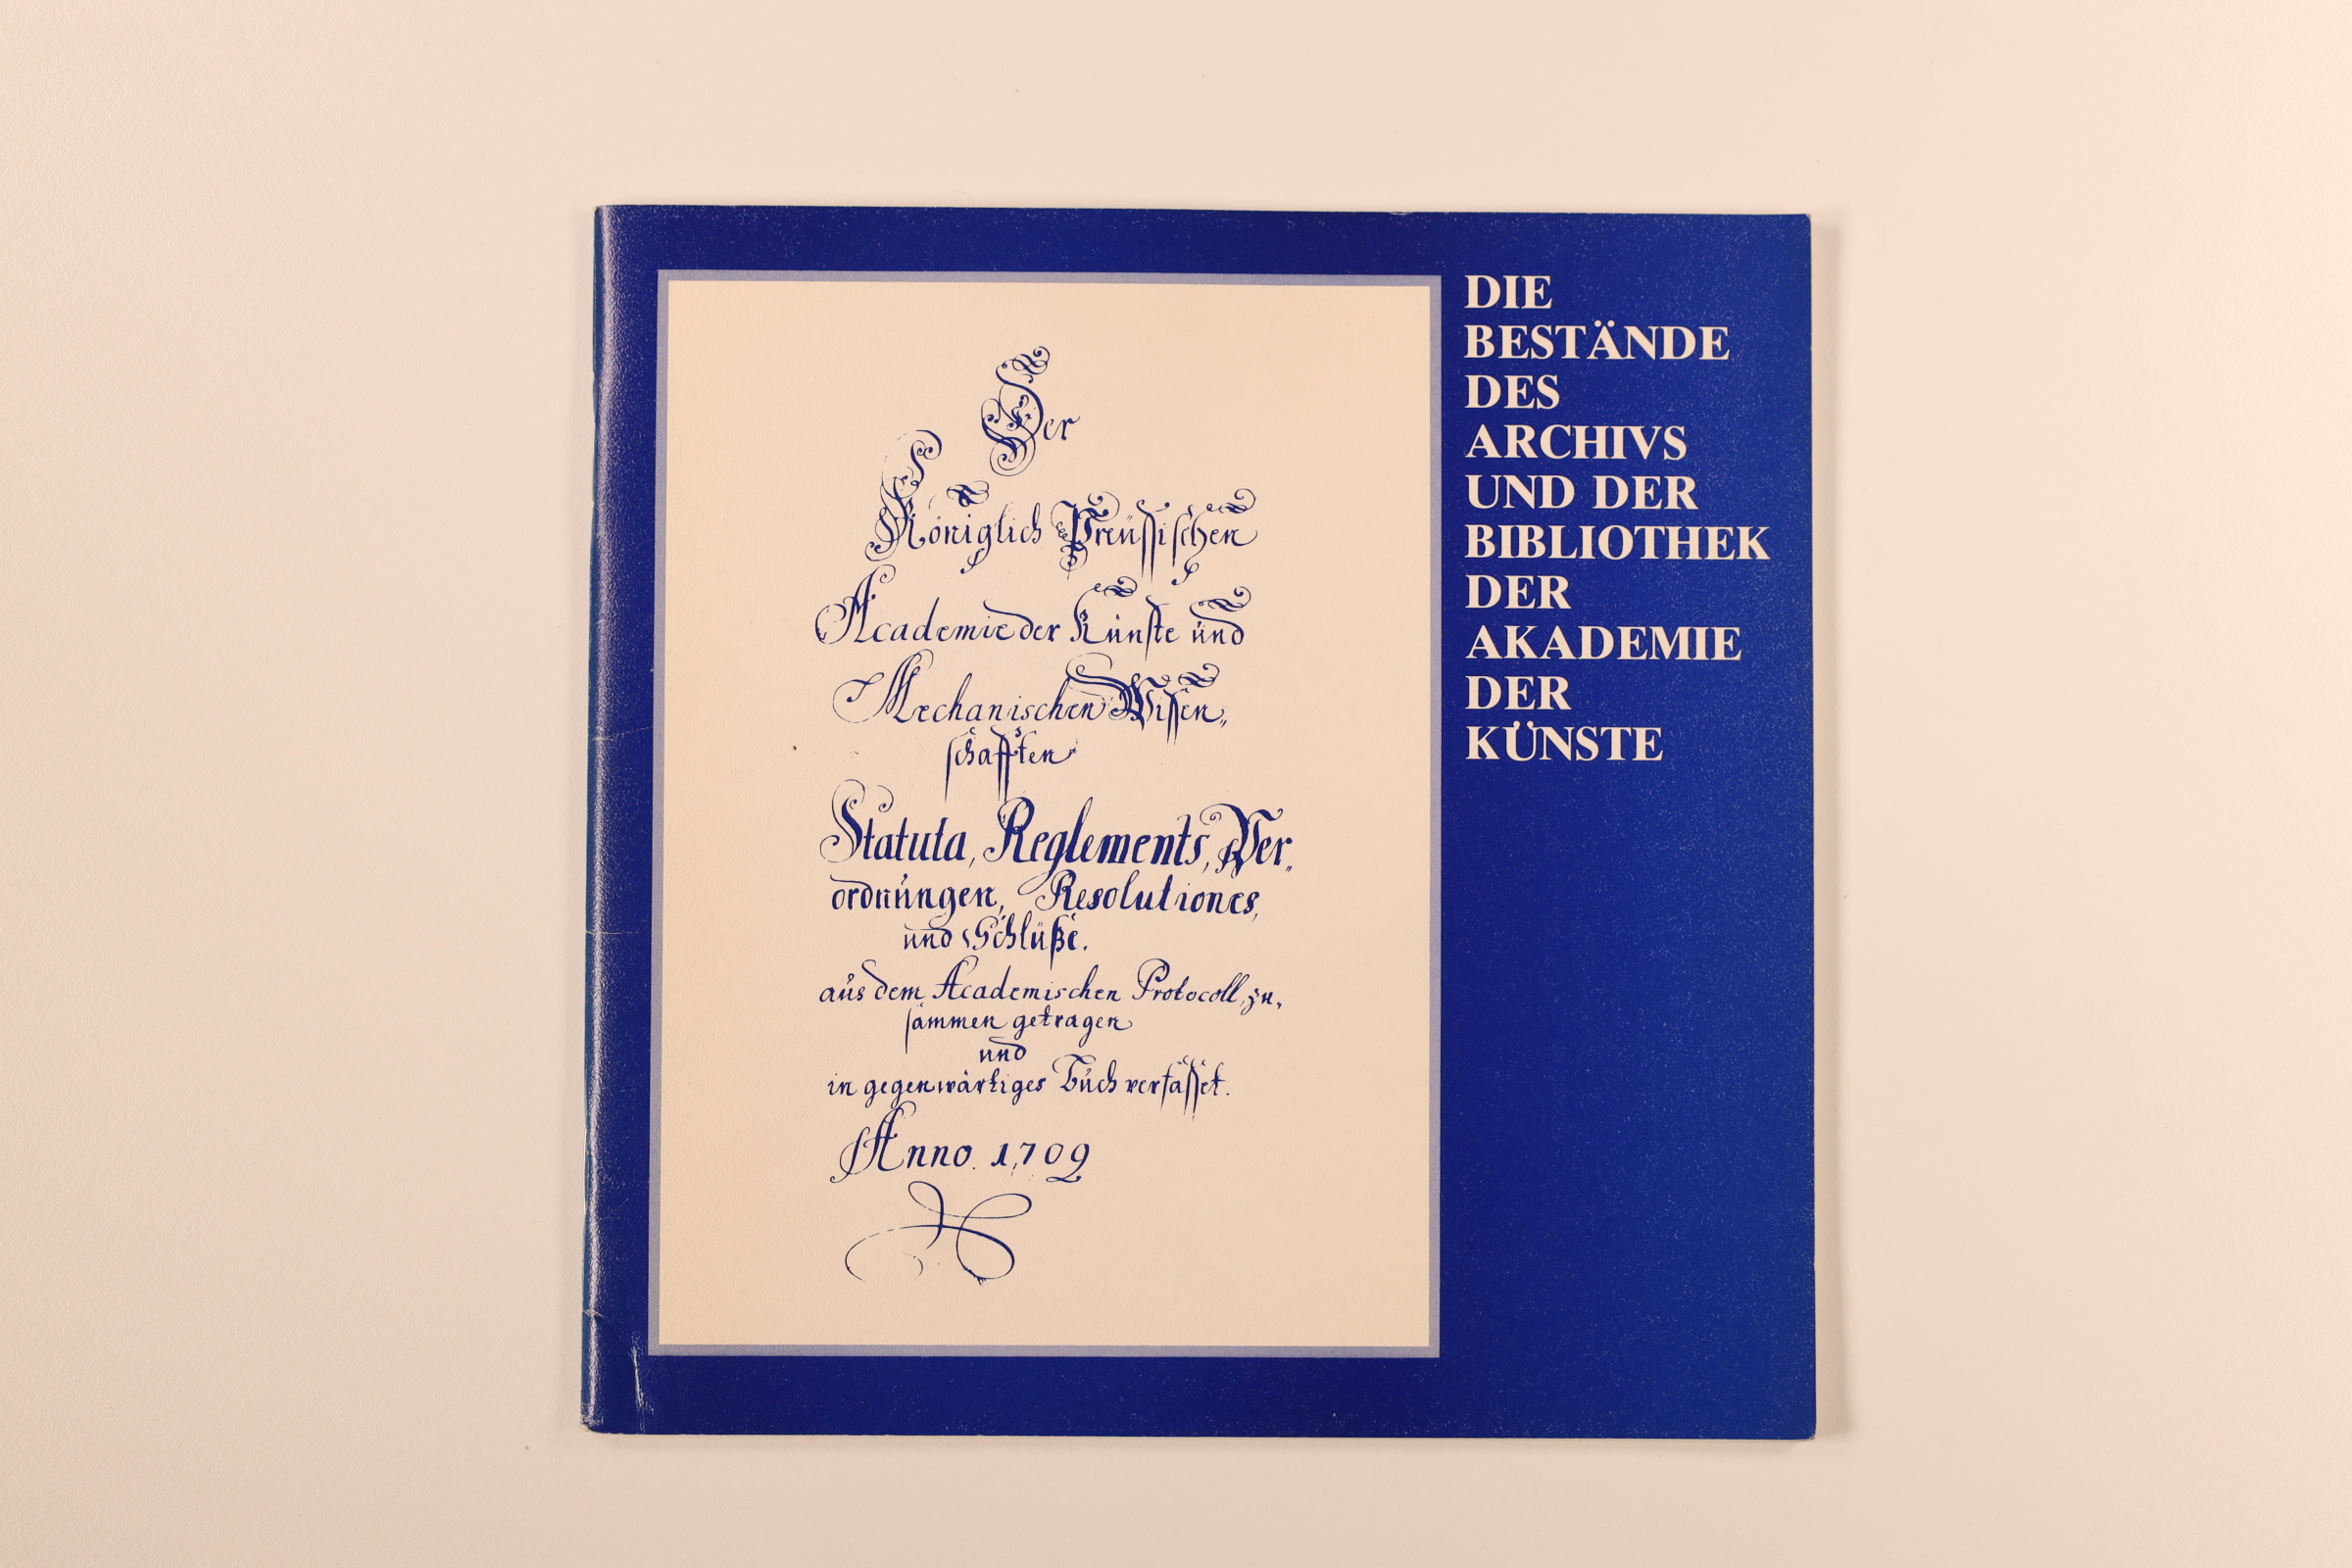 Der
Königlich Preüssischen
Academie der Künste und
Mechanischen Wissen„
schafften
Statuta, Reglements, Ver„
ordnungen, Resolutiones,
und Schlüße.
aus dem Academischen Protocoll, zu,
sammen getragen
und
in gegenwärtiges Buch verfasset.
Anno. 1709
DIE
BESTÄNDE
DES
ARCHIVS
UND DER
BIBLIOTHEK
DER
AKADEMIE
DER
KÜNSTE